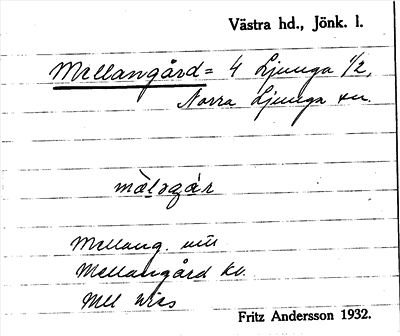 Västra hd., Jönk. l.
Mellangård = 4 Ljunga 1/2,
Norra Ljunga sn.
Mellang.
Mellangård kv.
Fritz Andersson 1932.